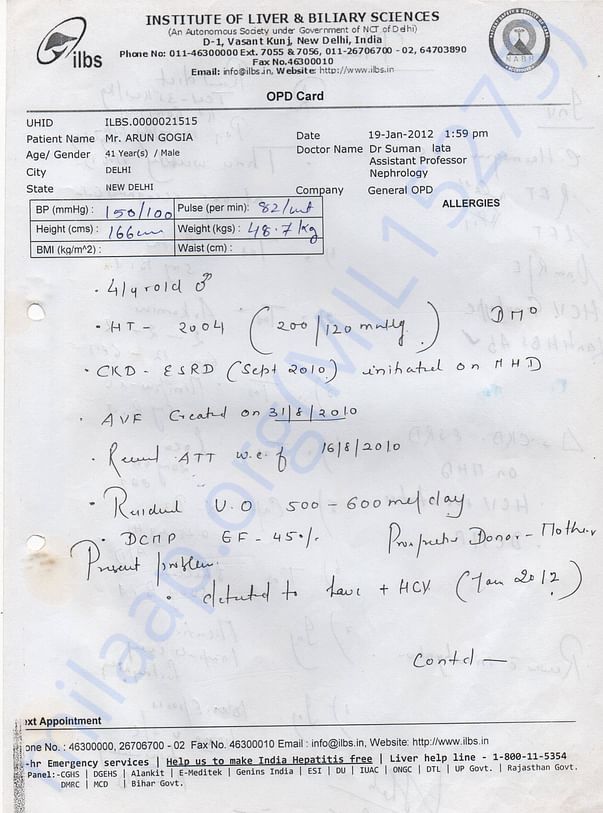 INSTITUTE OF LIVER & BILIARY SCIENCES
(An Autonomous Society under Government of NCT of Delhi)
D-1, Vasant Kunj, New Delhi, India
Phone No: 011-46300000 Ext. 7055 & 7056, 011-26706700 - 02, 64703890
Fax No.46300010
Email: info@ilbs.in, Website: http://www.ilbs.in
ilbs
NABH
OPD Card
UHID ILBS.0000021515
Patient Name Mr. ARUN GOGIA Date 19-Jan-2012 1:59 pm
Age/ Gender 41 Year(s) / Male Doctor Name Dr Suman lata
Assistant Professor
City DELHI Nephrology
State NEW DELHI Company General OPD
ALLERGIES
BP (mmHg) : 150/100 Pulse (per min): 82/mt
Height (cms) : 166cm Weight (kgs) : 48.7 kg
BMI (kg/m^2) : Waist (cm) :
• 41 yr old ♂
• HT - 2004 (200/120 mmHg) DM⁰
• CKD - ESRD (Sept 2010) initiated on MHD
• AVF Created on 31/8/2010
• ATT w.e.f 16/8/2010
• Residual U.O 500 - 600 ml/day
• DCMP EF - 45% Prospective Donor - Mother
Present problem
• detected to have + HCV (Jan 2012)
Contd —
ext Appointment
one No. : 46300000, 26706700 - 02 Fax No. 46300010 Email : info@ilbs.in, Website: http://www.ilbs.in
-hr Emergency services | Help us to make India Hepatitis free | Liver help line - 1-800-11-5354
Panel:-CGHS | DGEHS | Alankit | E-Meditek | Genins India | ESI | DU | IUAC | ONGC | DTL | UP Govt. | Rajasthan Govt.
DMRC | MCD | Bihar Govt.
milaap.org(MIL15279)